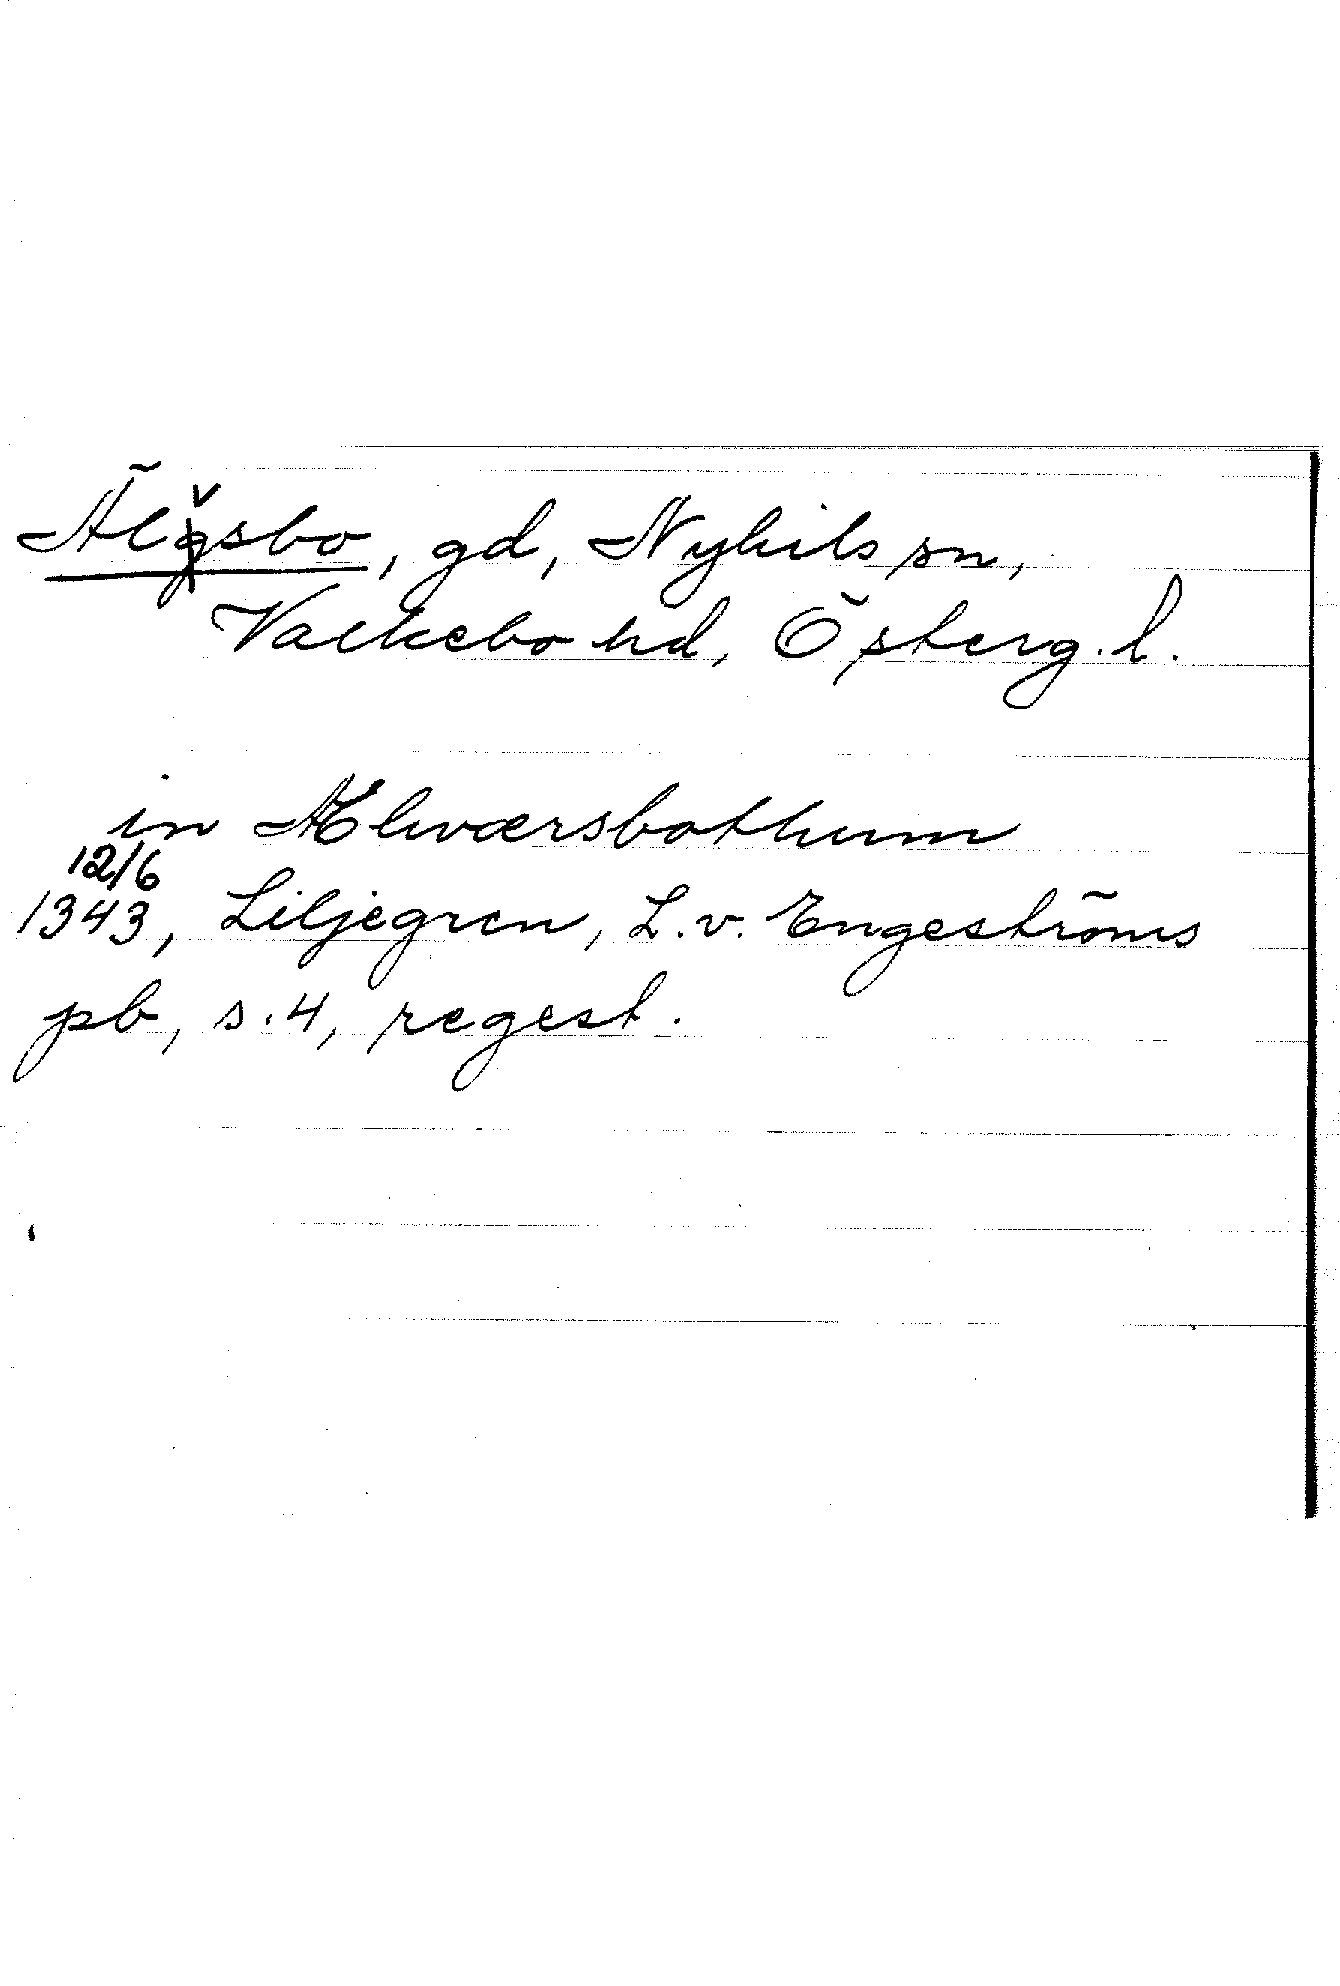 Älvsbo, gd, Nykils sn,
Valkebo hd, Österg. l.
in Ælwærsbothum
12/6
1343, Liljegren, L. v. Engeströms
pb, s. 4, regest.